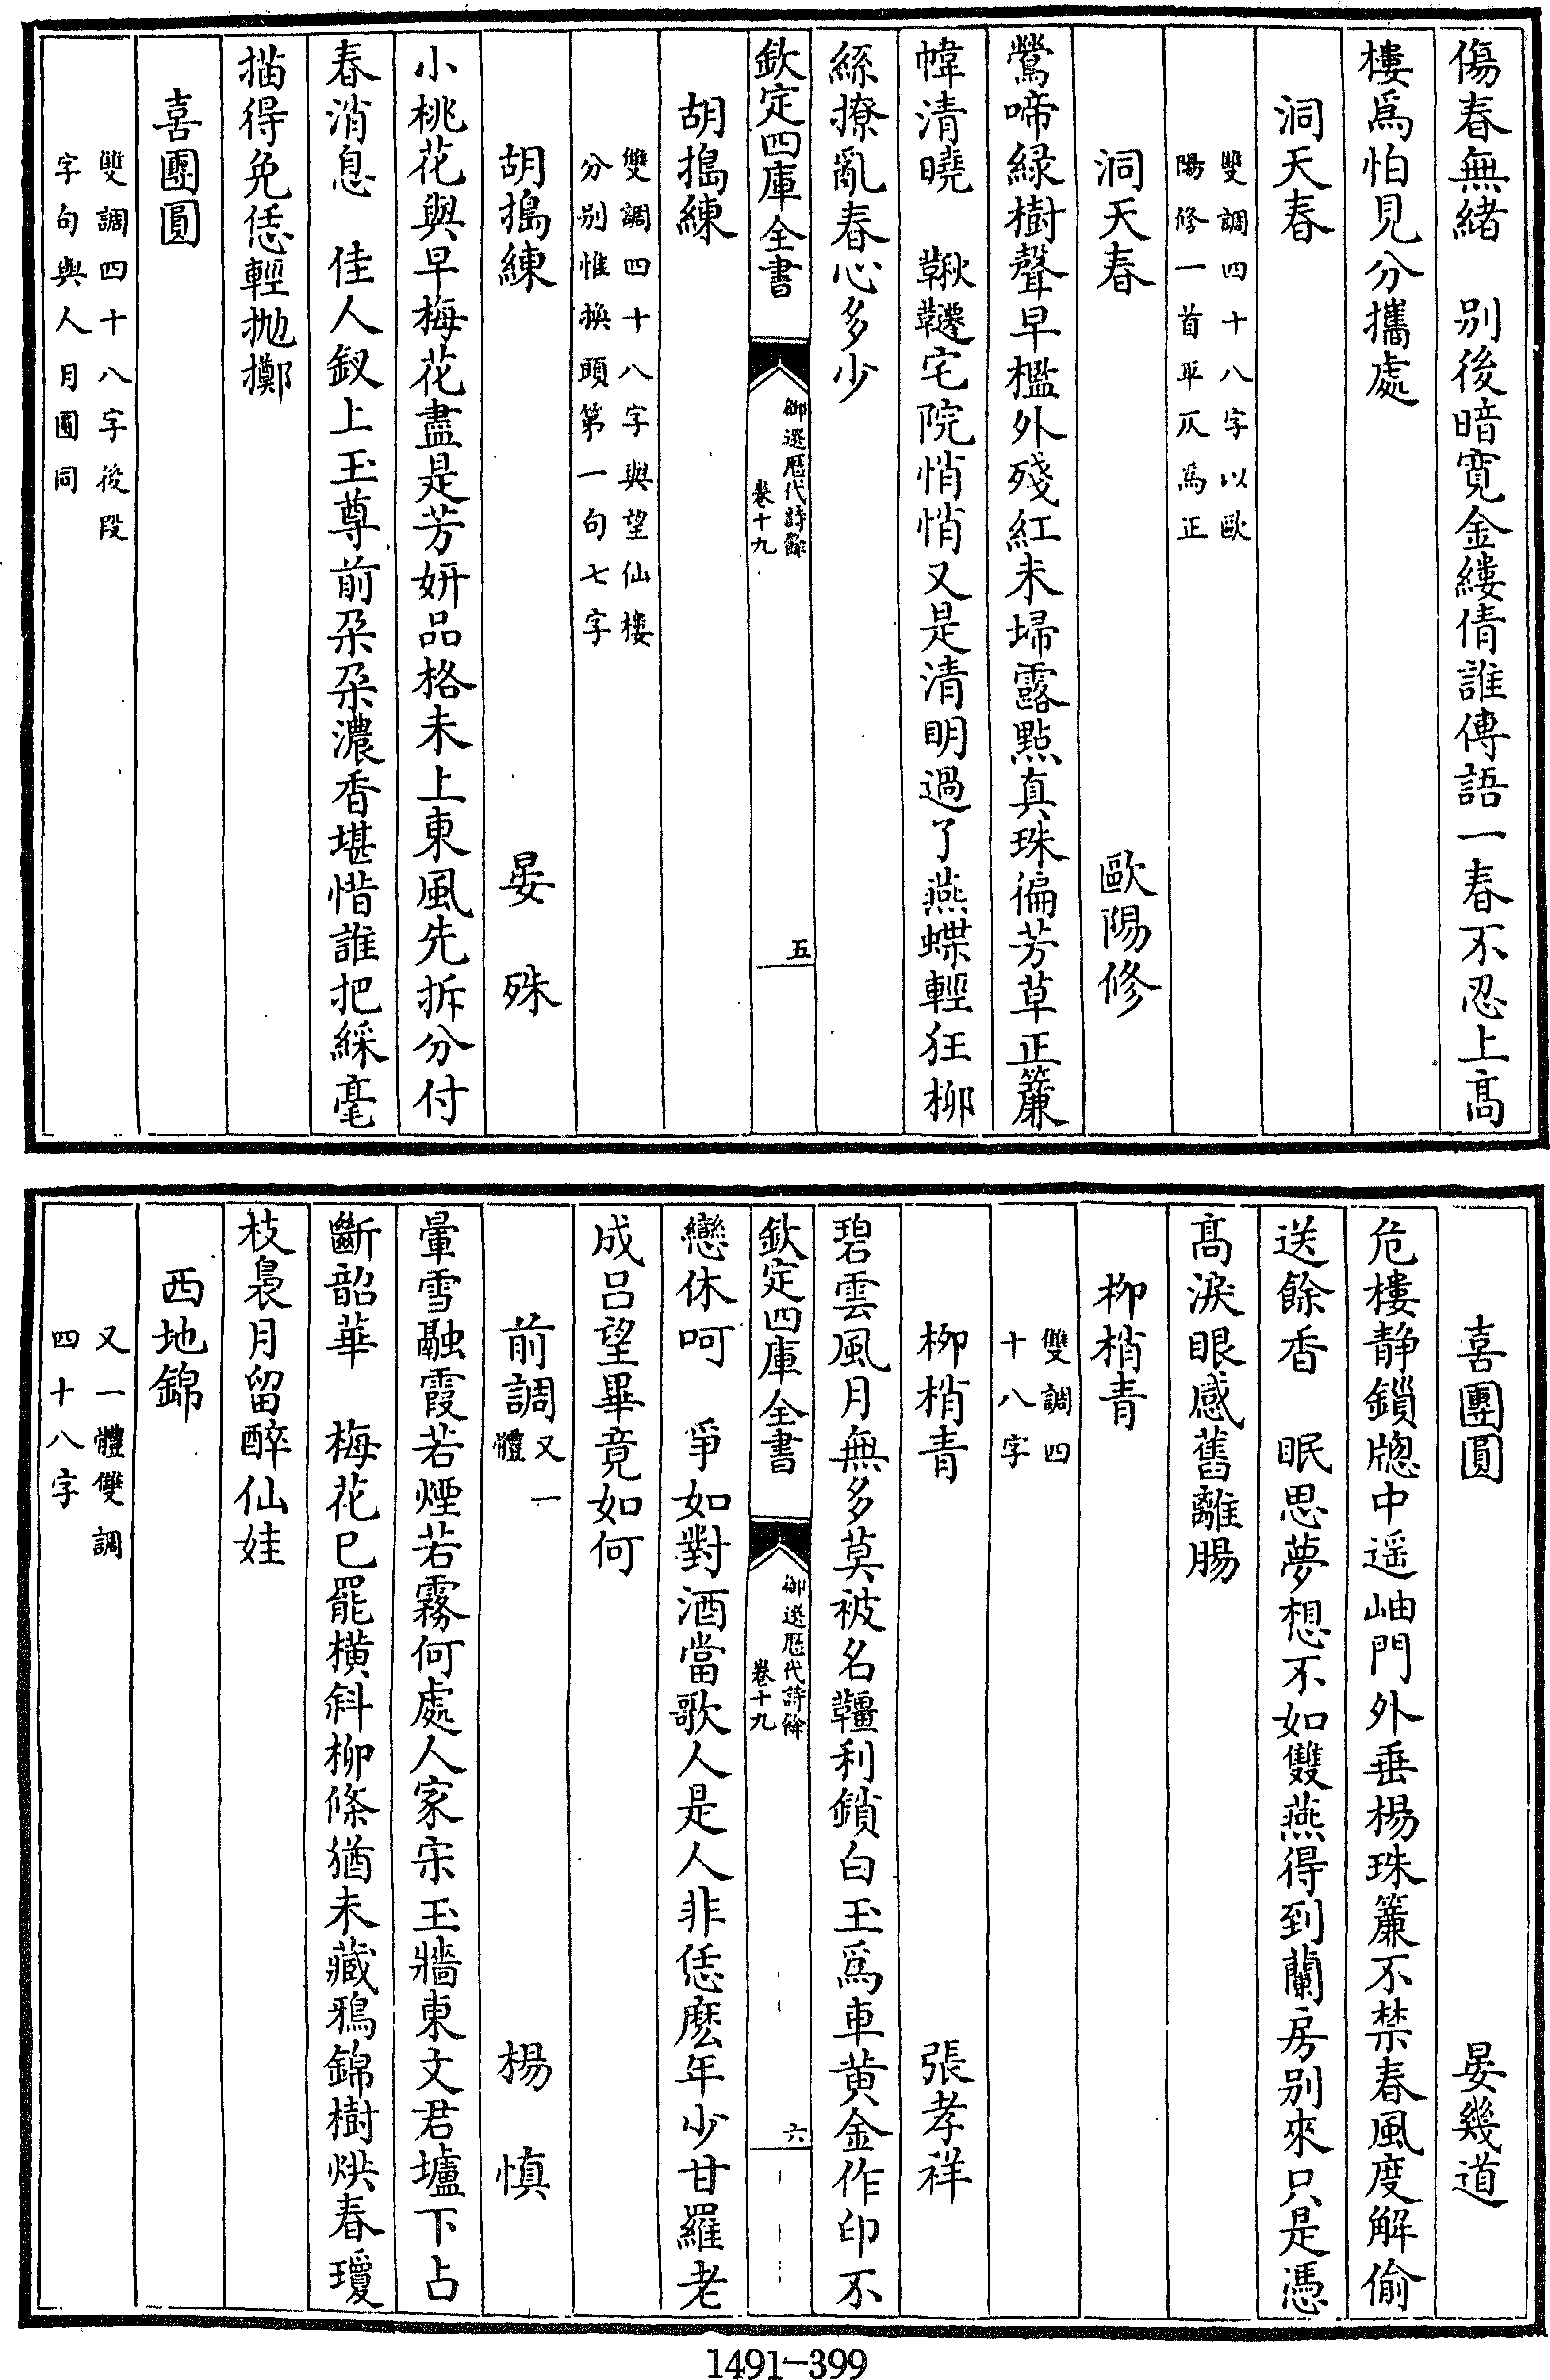 傷春無緒　别後暗寛金縷倩誰傳語一春不忍上髙
樓爲怕見分攜處
洞天春
雙調四十八字以歐
陽修一首平仄爲正
洞天春　歐陽修
鶯啼緑樹聲早檻外殘紅未埽露㸃真珠徧芳草正簾
幃清曉　鞦韆宅院悄悄又是清明過了燕蝶輕狂柳
絲撩亂春心多少
欽定四庫全書
御選歴代詩餘
卷十九
五
胡搗練
雙調四十八字與望仙樓
分别惟換頭第一句七字
胡搗練　晏殊
小桃花與早梅花盡是芳妍品格未上東風先拆分付
春消息　佳人釵上玉尊前朶朶濃香堪惜誰把綵毫
描得免恁輕抛擲
喜團圓
雙調四十八字後段
字句與人月圓同
喜團圓　晏幾道
危樓静鎖牕中遥岫門外垂楊珠簾不禁春風度解偷
送餘香　眠思夢想不如雙燕得到蘭房别來只是憑
髙淚眼感舊離腸
柳梢青
雙調四
十八字
柳梢青　張孝祥
碧雲風月無多莫被名韁利鎖白玉爲車黄金作印不
欽定四庫全書
御選歴代詩餘
卷十九
六
戀休呵　爭如對酒當歌人是人非恁麽年少甘羅老
成吕望畢竟如何
前調又一體　楊慎
暈雪融霞若煙若霧何處人家宋玉牆東文君壚下占
斷韶華　梅花已罷橫斜柳條猶未藏鴉錦樹烘春瓊
枝裊月留醉仙娃
西地錦
又一體雙調
四十八字
1491-399